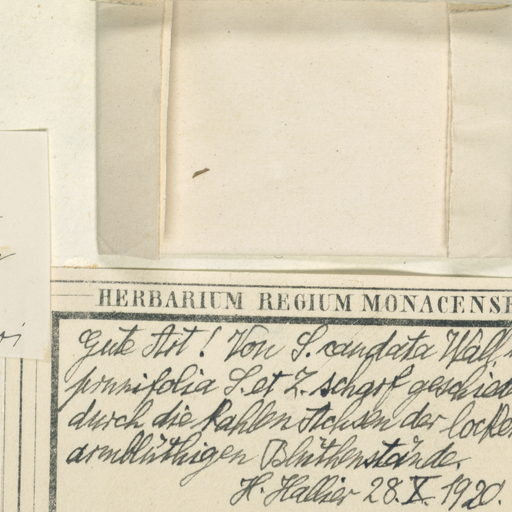 HERBARIUM REGIUM MONACENSE
Gute Art! Von S. caudata Wall.
prunifolia S. et Z. scharf geschied
durch die kahlen Achsen der locker
armblüthigen Blüthenstände.
H. Hallier 28. X. 1920.